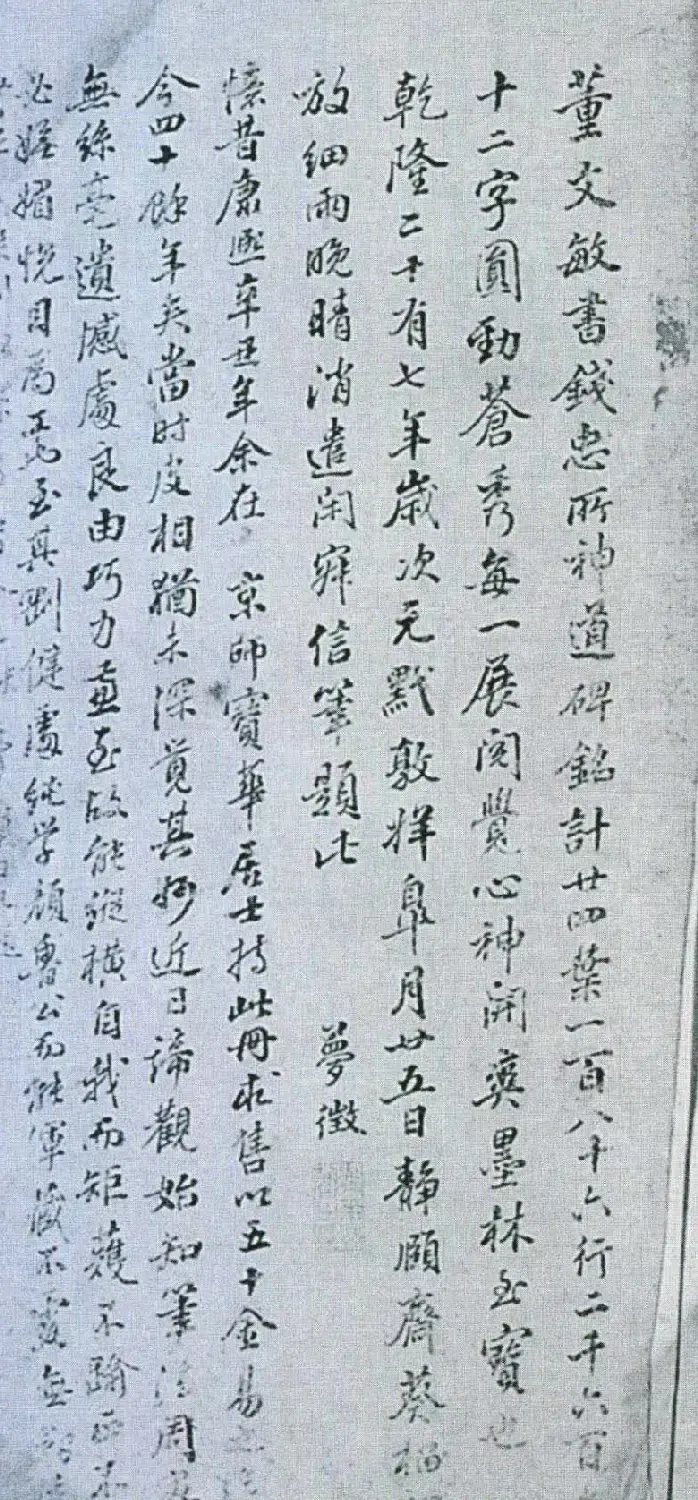 董文敏書錢忠所神道碑銘計廿四葉一百八十六行二千六百
十二字圓勁蒼秀每一展閱覺心神開爽墨林至寶也
乾隆二十有七年歲次元黓敦牂皐月廿五日靜頤齋葵榴
放細雨晚晴消遣閑窗信筆題此 夢徵
憶昔康熙辛丑年余在 京師寶華居士持此冊求售以五十金易
今四十餘年矣當時皮相猶未深覺其妙近日諦觀始知筆法周
無絲毫遺憾處良由巧力直至故能縱橫自我而矩矱不踰正不
必姿媚悅目為工至其剛健處純學顏魯公而能渾藏不露無